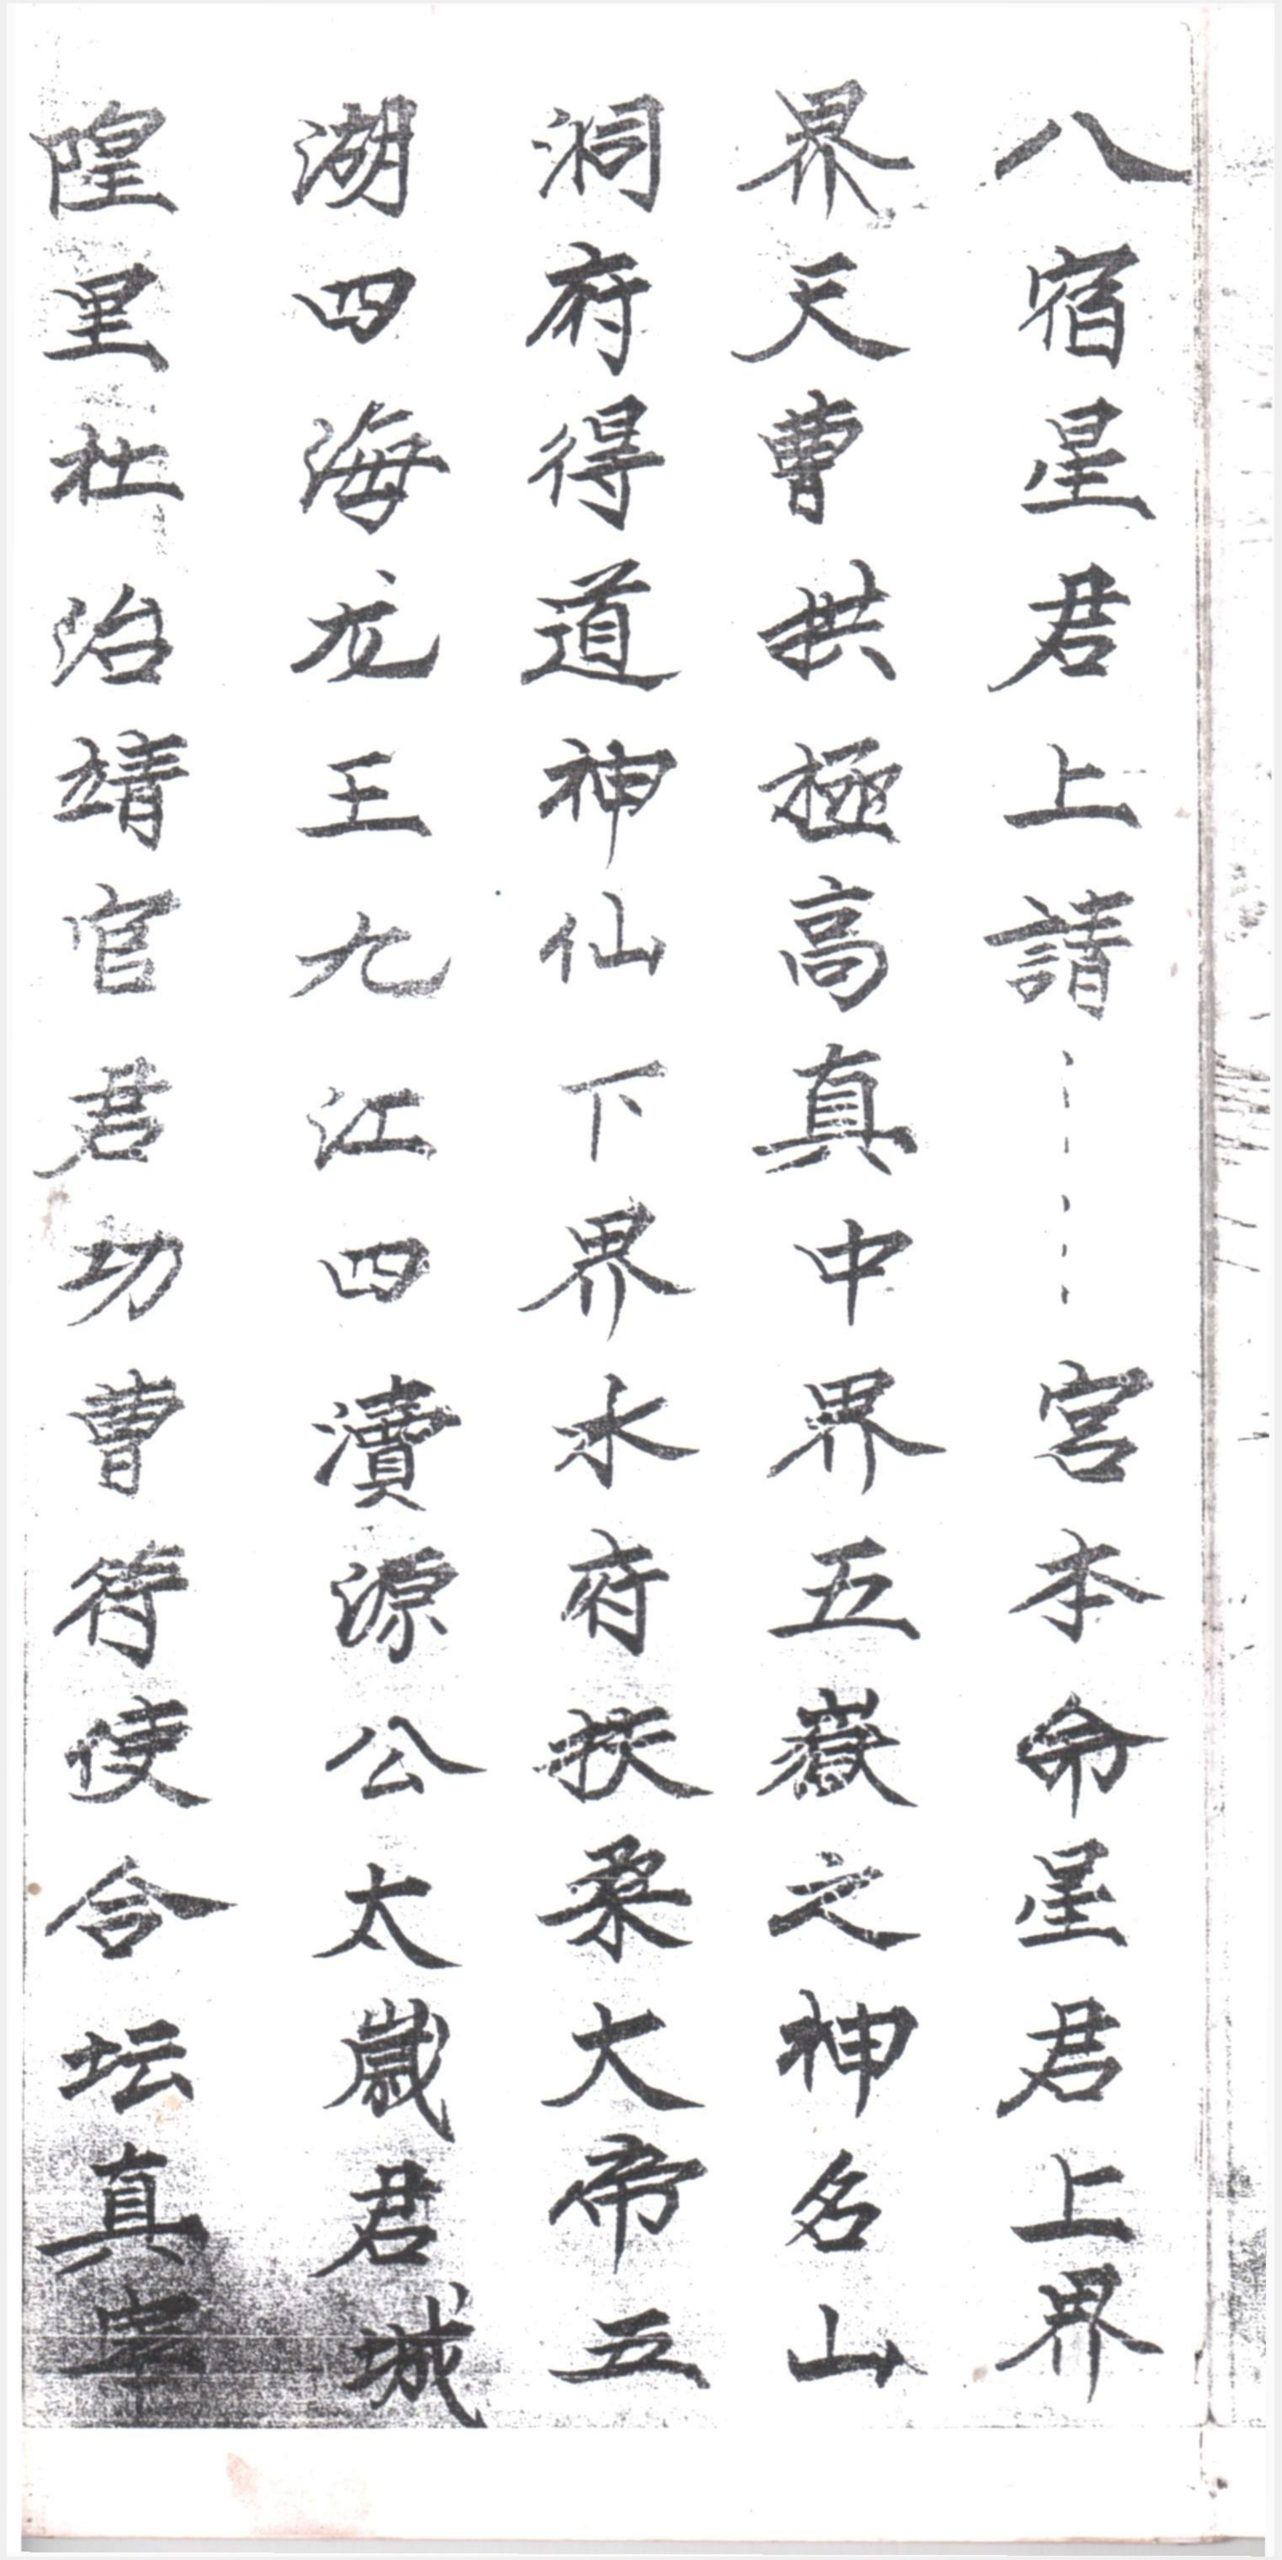 八宿星君上請……宫本命星君上界
界天曹拱極高真中界五嶽之神名山
洞府得道神仙下界水府扶桑大帝五
湖四海龙王九江四瀆源公太歲君城
隍里社治靖官君功曹符使合坛真宰